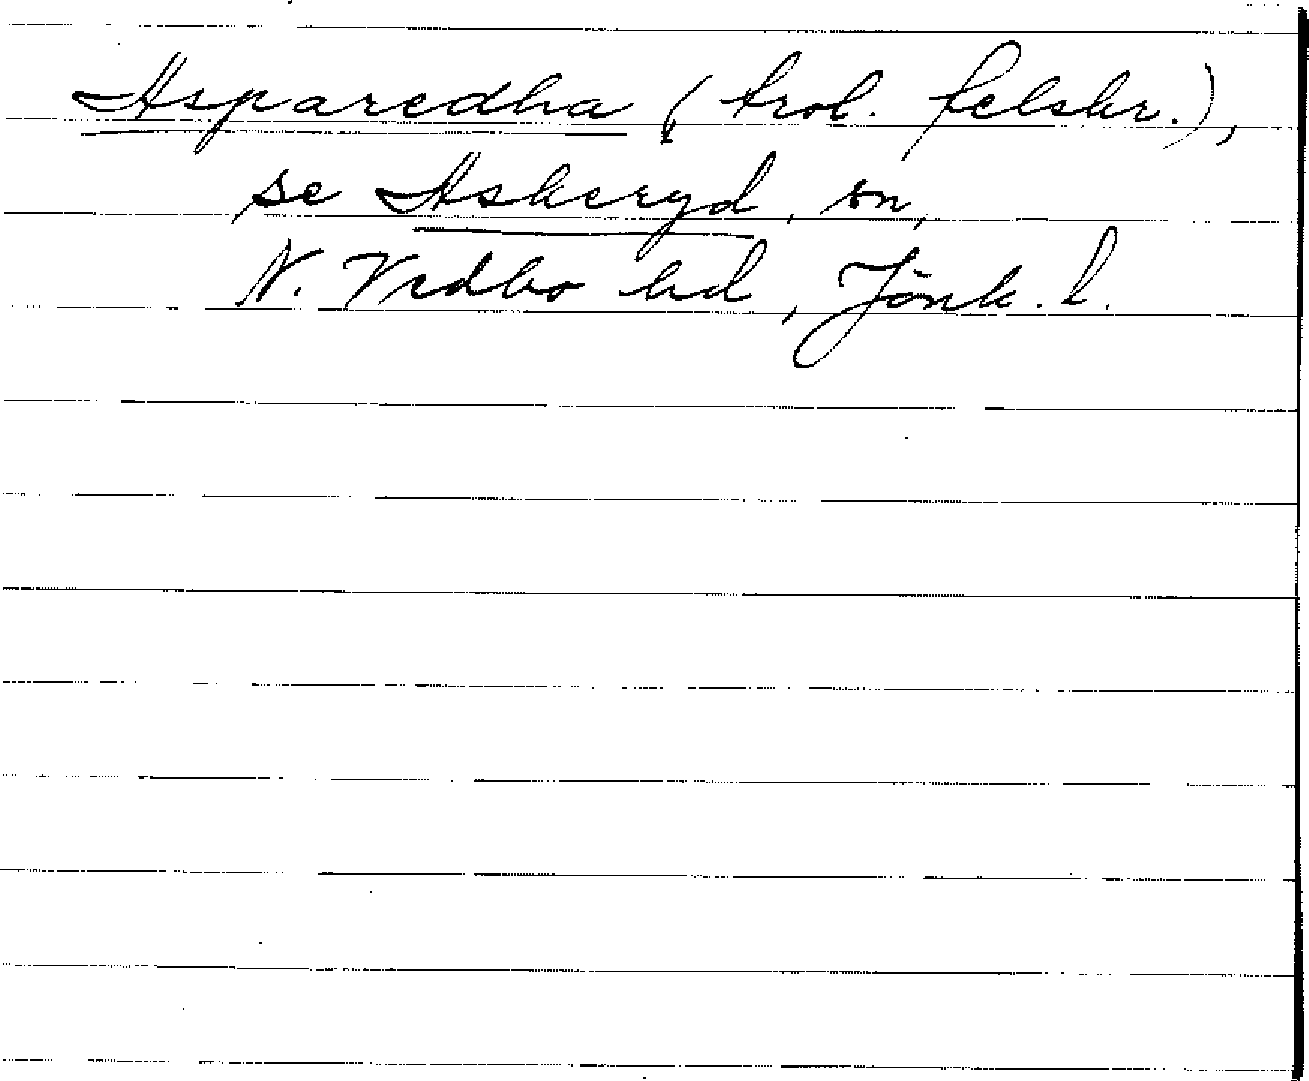 Asparedha (trol. felskr.),
se Askeryd, sn,
N. Vedbo hd, Jönk. l.